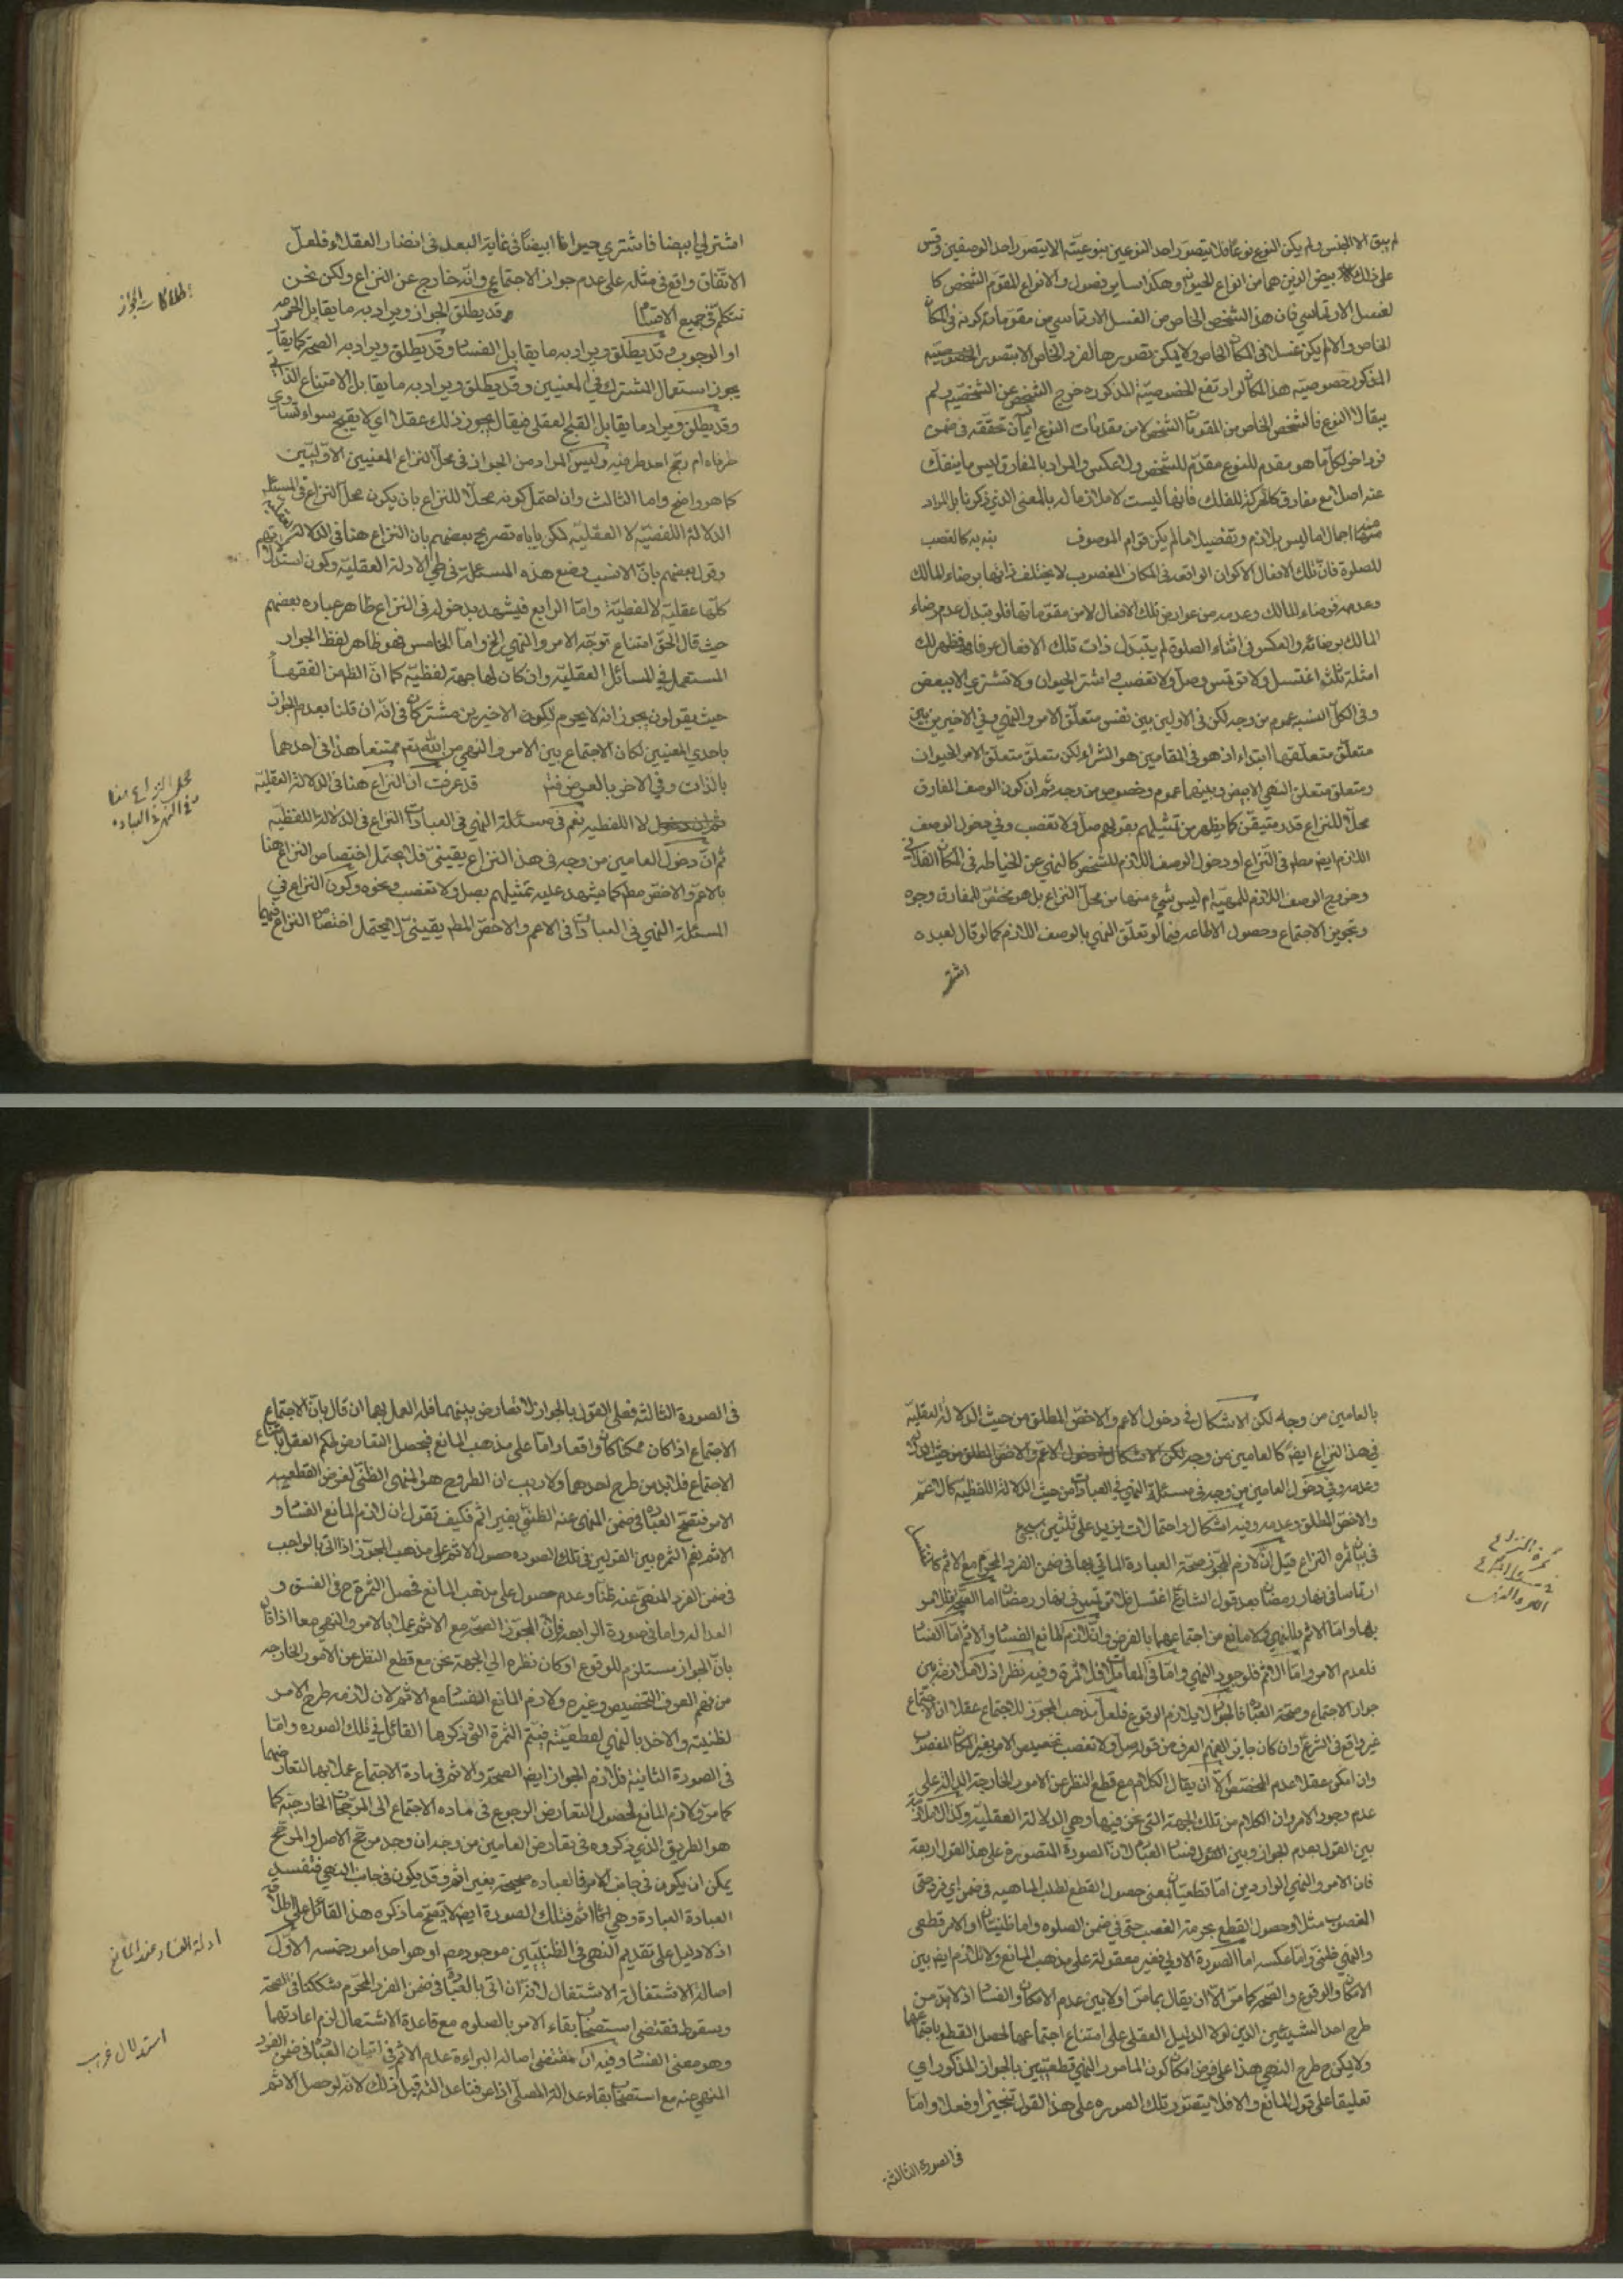 لم يبق الا الجنس ولم يكن النوع نوعا فلا يتصور احد النوعين بنوعيته الا بتصور احد الوصفين وقس
على ذلك بيض الذين هما من انواع الحيوان وهكذا ساير فصول الانواع المقوم الشخص كا
لغسل الارتماسي فان هذا الشخص الخاص من الغسل الارتماسي من مقوماته كونه في المكان
الخاص والا لم يكن غسلا في المكان الخاص ولا يمكن تصور هذا الفرد الخاص الا بتصور الخصوصية
المذكور خصوصية هذا المكان لو ارتفع الخصوصية المذكوره خرج الشخص عن الشخصية ولم
يبقى الا النوع فالشخص الخاص من المقومات الشخص لا من مقدمات النوع لامكان تحققه في ضمن
فرد اخر لكل ما هو مقدم للنوع مقدم للشخص ولا عكس والمراد بالمفارق ليس ما ينفك
عنه اصلا مع مفارق كالحركة للفلك فانها ليست لا ملازما له بالمعنى الذي ذكرنا بل المراد
منهما اجمالا ما ليس بلازم وتفصيلا ما لم يكن قوام الموصوف بنه به كالغصب
للصلوة فان تلك الافعال الاكوان الواقعه في المكان المغصوب لا يختلف ذاتها برضاء المالك
وعدمه فرضاء المالك وعدمه من عوارض تلك الافعال لا من مقوماتها فلو تبدل عدم رضاء
المالك برضائه والعكس في اثناء الصلوة لم يتبدل ذات تلك الافعال عرفا فظهر لك
امثلة ثلث اغتسل ولا ترتمس وصل ولا تغصب واشتر الحيوان ولا تشتري الابيض
وفي الكل النسبة عموم من وجه لكن في الاولين بين نفس متعلق الامر والنهي وفي الاخير من بين
متعلق متعلقهما ابتداء اذ هو في المقامين هو الشراء لكن متعلق متعلق الامر الحيوان
ومتعلق متعلق النهي الابيض وبينهما عموم وخصوص من وجه ثم ان كون الوصف المفارق
محلا للنزاع قدر متيقن كما يظهر من تمثيلهم بقولهم صل ولا تغصب وفي دخول الوصف
اللازم ايض مطم في النزاع او دخول الوصف اللازم للشخص كالنهي عن الخياطه في المكان الفلاني
وخروج الوصف اللازم للمهية ام ليس شيء منها من محل النزاع بل هو مختص المفارق وجوه
وتجويز الاجتماع وحصول الاطاعه فيما لو تعلق النهي بالوصف اللازم كما لو قال لعبده
اشتر
اشتر لي ابيضا فاشترى حيوانا ابيضا في غاية البعد في انظار العقلاء فلعل
الاتفاق واقع في مثله على عدم جواز الاجتماع وانه خارج عن النزاع ولكن نحن
نتكلم في جميع الاقسام وقد يطلق الجواز ويراد به ما يقابل الحرمه
او الوجوب وقد يطلق ويراد به ما يقابل الفساد وقد يطلق ويراد به الصحة كما يقال
يجوز استعمال المشترك في المعنيين وقد يطلق ويراد به ما يقابل الامتناع الذاتي
وقد يطلق ويراد ما يقابل القبح العقلي فيقال يجوز ذلك عقلا اي لا يقبح سواء تساوي
طرفاه ام رجح احد طرفيه وليس المراد من الجواز في محل النزاع المعنيين الاوليين
كما هو واضح واما الثالث وان احتمل كونه محلا للنزاع بان يكون محل النزاع في المسئلة
الدلالة اللفظية لا العقلية لكن ياباه تصريح بعضهم بان النزاع هنا في الدلالة العقلية
وقول بعضهم بان الانسب وضع هذه المسئلة في طي الادلة العقلية وكون استدلالاتهم
كلها عقلية لا لفظية واما الرابع فيشهد بدخوله في النزاع ظاهر عباره بعضهم
حيث قال الحق امتناع توجه الامر والنهي الخ واما الخامس فهو ظاهر لفظ الجواز
المستعمل في المسائل العقلية وان كان لها جهة لفظية كما ان الظ من الفقهاء
حيث يقولون يجوز انه لا يحرم لكون الاخيرين مشتركان في انه ان قلنا بعدم الجواز
باحدي المعنيين لكان الاجتماع بين الامر والنهي من الله تع ممتنعا هذا في احدهما
بالذات وفي الاخر بالعرض فتم قد عرفت ان النزاع هنا في الدلالة العقلية
لا اللفظيه نعم في مسئلة النهي في العبادات النزاع في الدلالة اللفظيه
ثم ان دخول العامين من وجه في هذا النزاع يقيني فلا يحتمل اختصاص النزاع هنا
بالاعم والاخص مطم كما يشهد عليه تمثيلهم بصل ولا تغصب ونحوه وكون النزاع في
المسئلة النهي في العبادات في الاعم والاخص المطم يقيني لا يحتمل اختصاص النزاع فيها
محل النزاع هنا
وفي النهي في العباده
بالعامين من وجه لكن الاشكال في دخول الاعم والاخص المطلق من حيث الدلالة العقلية
في هذا النزاع ايض كالعامين من وجه لكن الاشكال في دخول الاعم والاخص المطلق من حيث الدلالة
وعدمه وفي دخول العامين من وجه في مسئلة النهي في العبادات من حيث الدلالة اللفظية كالاعم
والاخص المطلق وعدمه وفيه اشكال واحتمالات يزيد على ثلثين سيجئ
في بيان ثمره النزاع قيل ان لازم المجوز صحة العبادة الماتي بها في ضمن الفرد المحرم مع الاثم كما
ارتماسا في نهار رمضان بعد قول الشارع اغتسل ولا ترتمس في نهار رمضان اما الصحة فللامر
بها واما الاثم فللنهي ولا مانع من اجتماعهما بالفرض وان لازم المانع الفساد والاثم اما الفساد
فلعدم الامر واما الاثم فلوجود النهي واما في المعاملات فلا ثمرة وفيه نظر اذ لا ملازمة بين
جواز الاجتماع وصحة العبادة فالجواز لا يلازم الوقوع فلعل مذهب المجوز للاجتماع عقلا ان الاجتماع
غير واقع في الشرع وان كان جايزا لفهم العرف من قوله صل ولا تغصب تخصيص الامر بغير المكان المغصوب
وان امكن عقلا عدم المخصص الا ان يقال الكلام مع قطع النظر عن الامور الخارجة الدالة على
عدم وجود الامر وان الكلام من تلك الجهة التي نحن فيها وهي الدلالة العقلية وكذا لا ملازمة
بين القول بعدم الجواز وبين القول بفساد العبادة لان الصورة المتصورة على هذا القول اربعة
فان الامر والنهي الواردين اما قطعيان بمعنى حصول القطع لطلب الماهيه في ضمن اي فرد حتى
الغصوب مثلا وحصول القطع بحرمة الغصب حتى في ضمن الصلوه واما ظنيتان او الامر قطعي
والنهي ظني واما عكسه اما الصورة الاولى فغير معقولة على مذهب المانع ولا تلازم ايض بين
الامكان والوقوع والصحة كما مر الا ان يقال بما مر اولا بين عدم الامكان والفساد اذ لابد من
طرح احد الشيئين الذين لولا الدليل العقلي على امتناع اجتماعهما لحصل القطع باجتماعهما
ولا يكون ح طرح النهي هذا على فرض امكان كون المامور والنهي قطعيين بالجواز المذكور اي
تعليقا على قول المانع والا فلا يتصور تلك الصوره على هذا القول تنجيزا وفعلا واما
في الصورة الثالثة
ثمرة النزاع
في الصورة الثالثة فعلى القول بالجواز لا تعارض بينهما فله العمل بهما ان قال بان الاجتماع
الاجتماع اذا كان ممكنا كان واقعا واما على مذهب المانع فيحصل التعارض لحكم العقل بامتناع
الاجتماع فلابد من طرح احدهما ولا ريب ان المطروح هو المنهى الظني لفرض القطعيه
الامر فتصح العبادة في ضمن المنهى عنه الظني بغير اثم فكيف تقول ان لازم المانع الفساد و
الاثم نعم الثمره بين القولين في تلك الصوره حصول الاثم على مذهب المجوز اذا اتى بالواجب
في ضمن الفرد المنهى عنه ظنا وعدم حصول على مذهب المانع فحصل الثمرة ح في الفسق و
العداله واما في صورة الرابعه فلان المجوز الصحة مع الاثم عملا بالامر والنهي معا اذا قال
بان الجواز مستلزم للوقوع او كان نظره الى الجهة نحن مع قطع النظر عن الامور الخارجه
من فهم العرف التخصيص وغيره ولازم المانع الفساد مع الاثم لان لازمه طرح الامر
لظنيته والاخذ بالنهي لقطعيته فيتم الثمرة التي ذكرها القائل في تلك الصوره واما
في الصورة الثانية فلازم الجواز ايض الصحة والاثم في مادة الاجتماع عملا بهما لا تعارضهما
كما مر ولازم المانع لحصول التعارض الرجوع في ماده الاجتماع الى المرجحات الخارجيه كما
هو الطريق الذي ذكروه في تعارض العامين من وجه ان وجد مرجح الاصل والمرجح
يمكن ان يكون في جانب الامر فالعباده صحيحة بغير اثم وقد يكون في جانب النهي فتفسد
العبادة وهي اثما اثم فتلك الصورة ايض لا يصح ما ذكره هذا القائل على اطلاقه
اذ لا دليل على تقديم النهي في الظنيين موجود مع او هو احد امور خمسه الاول
اصالة الاشتغال لانه ان اتى بالعبادة في ضمن الفرد المحرم شككنا في الصحة
وبسقوط فمقتضى استصحاب بقاء الامر بالصلوه مع قاعدة الاشتغال لزم اعادتها
وهو معنى الفساد وفيه ان مقتضى اصالة البراءة عدم الاثم في اتيان العبادة في ضمن الفرد
المنهى عنه مع استصحاب بقاء عدالة المصلي اذا عرفنا عدالته قبل ذلك لانه لو حصل الاثم
ادلة الفساد عند المانع
استدلال غريب